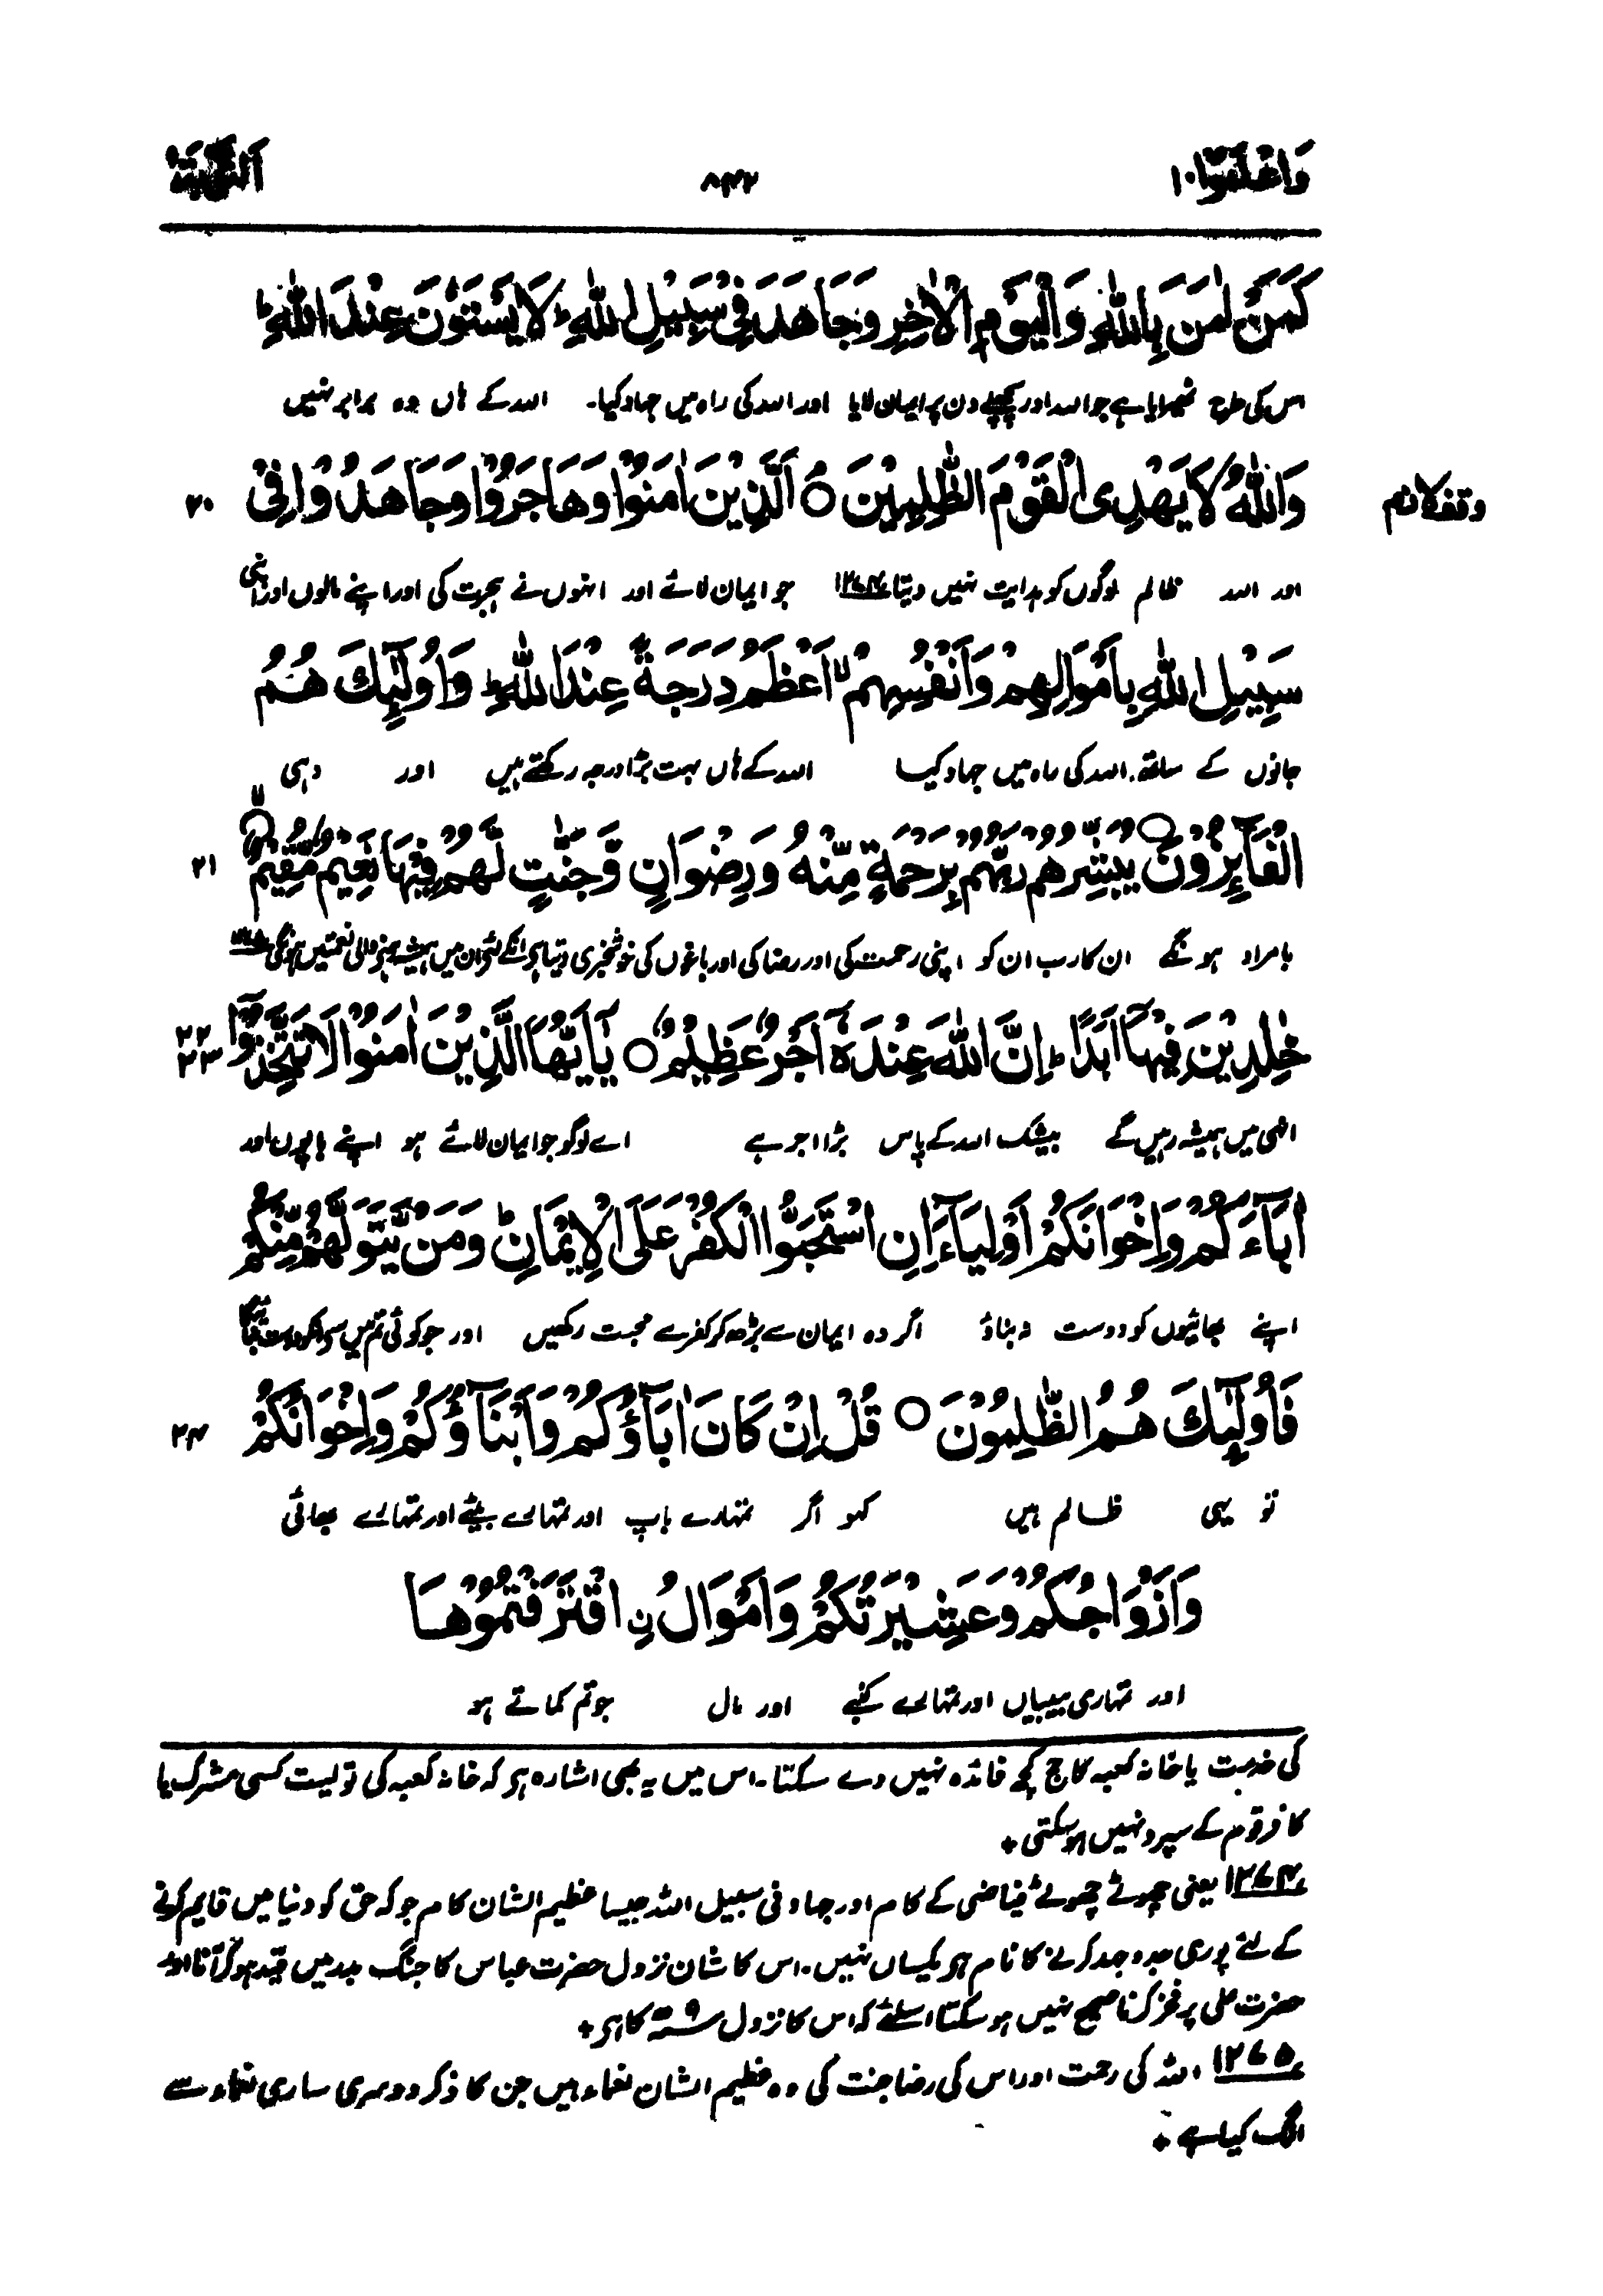 واعلموا ۱۰ ۸۴۲ التوبة
كَمَنْ اٰمَنَ بِاللّٰهِ وَالْيَوْمِ الْاٰخِرِ وَجَاهَدَ فِيْ سَبِيْلِ اللّٰهِ ؕ لَا يَسْتَوٗنَ عِنْدَ اللّٰهِ ؕ
اس کی طرح ٹھیرایا ہے جو اللہ اور پچھلے دن پر ایمان لایا اور اللہ کی راہ میں جہاد کیا۔ اللہ کے ہاں وہ برابر نہیں
وَاللّٰهُ لَا يَهْدِى الْقَوْمَ الظّٰلِمِيْنَ ۘ○ اَلَّذِيْنَ اٰمَنُوْا وَهَاجَرُوْا وَجَاهَدُوْا فِيْ ۲۰ وقف لازم
اور اللہ ظالم لوگوں کو ہدایت نہیں دیتا ۱۲۶۴ جو ایمان لائے اور انہوں نے ہجرت کی اور اپنے مالوں اور اپنی
سَبِيْلِ اللّٰهِ بِاَمْوَالِهِمْ وَاَنْفُسِهِمْ ۙ اَعْظَمُ دَرَجَةً عِنْدَ اللّٰهِ ؕ وَاُولٰٓئِكَ هُمُ
جانوں کے ساتھ اللہ کی راہ میں جہاد کیا اللہ کے ہاں بہت بڑا درجہ رکھتے ہیں اور وہی
الْفَآئِزُوْنَ ○ يُبَشِّرُهُمْ رَبُّهُمْ بِرَحْمَةٍ مِّنْهُ وَرِضْوَانٍ وَّجَنّٰتٍ لَّهُمْ فِيْهَا نَعِيْمٌ مُّقِيْمٌ ۙ○ ۲۱
بامراد ہونگے ان کا رب ان کو اپنی رحمت کی اور رضا کی اور باغوں کی خوشخبری دیتا ہے انکے لئے ان میں ہمیشہ رہنے والی نعمتیں ہونگی
خٰلِدِيْنَ فِيْهَآ اَبَدًا ؕ اِنَّ اللّٰهَ عِنْدَهٗٓ اَجْرٌ عَظِيْمٌ ○ يٰٓاَيُّهَا الَّذِيْنَ اٰمَنُوْا لَا تَتَّخِذُوْٓا ۲۲ ۲۳
انہی میں ہمیشہ رہیں گے بیشک اللہ کے پاس بڑا اجر ہے اے لوگو جو ایمان لائے ہو اپنے باپوں اور
اٰبَآءَكُمْ وَاِخْوَانَكُمْ اَوْلِيَآءَ اِنِ اسْتَحَبُّوا الْكُفْرَ عَلَى الْاِيْمَانِ ؕ وَمَنْ يَّتَوَلَّهُمْ مِّنْكُمْ
اپنے بھائیوں کو دوست نہ بناؤ اگر وہ ایمان سے بڑھ کر کفر سے محبت رکھیں اور جو کوئی تم میں سے انکو دوست بنائیگا
فَاُولٰٓئِكَ هُمُ الظّٰلِمُوْنَ ○ قُلْ اِنْ كَانَ اٰبَآؤُكُمْ وَاَبْنَآؤُكُمْ وَاِخْوَانُكُمْ ۲۴
تو یہی ظالم ہیں کہو اگر تمہارے باپ اور تمہارے بیٹے اور تمہارے بھائی
وَاَزْوَاجُكُمْ وَعَشِيْرَتُكُمْ وَاَمْوَالُ نِ اقْتَرَفْتُمُوْهَا
اور تمہاری بیبیاں اور تمہارے کنبے اور مال جو تم کماتے ہو
کی خدمت یا خانہ کعبہ کا حج کچھ فائدہ نہیں دے سکتا۔ اس میں یہ بھی اشارہ ہے کہ خانہ کعبہ کی تولیت کسی مشرک یا
کافر قوم کے سپرد نہیں ہو سکتی ٭
۱۲۶۴ یعنی چھوٹے چھوٹے فیاضی کے کام اور جہاد فی سبیل اللہ جیسا عظیم الشان کام جو کہ حق کو دنیا میں قایم کرنے
کے لئے پوری جدوجہد کرنے کا نام ہے یکساں نہیں۔ اس کا شان نزول حضرت عباس کا جنگ بدر میں قید ہو کر آنا اور
حضرت علی پر فخر کرنا صحیح نہیں ہو سکتا اسلئے کہ اس کا نزول سنہ ۹ کا ہے ٭
۱۲۶۵ اللہ کی رحمت اور اس کی رضا جنت کی وہ عظیم الشان نعماء ہیں جن کا ذکر دوسری ساری نعماء سے
الگ کیا ہے ٭